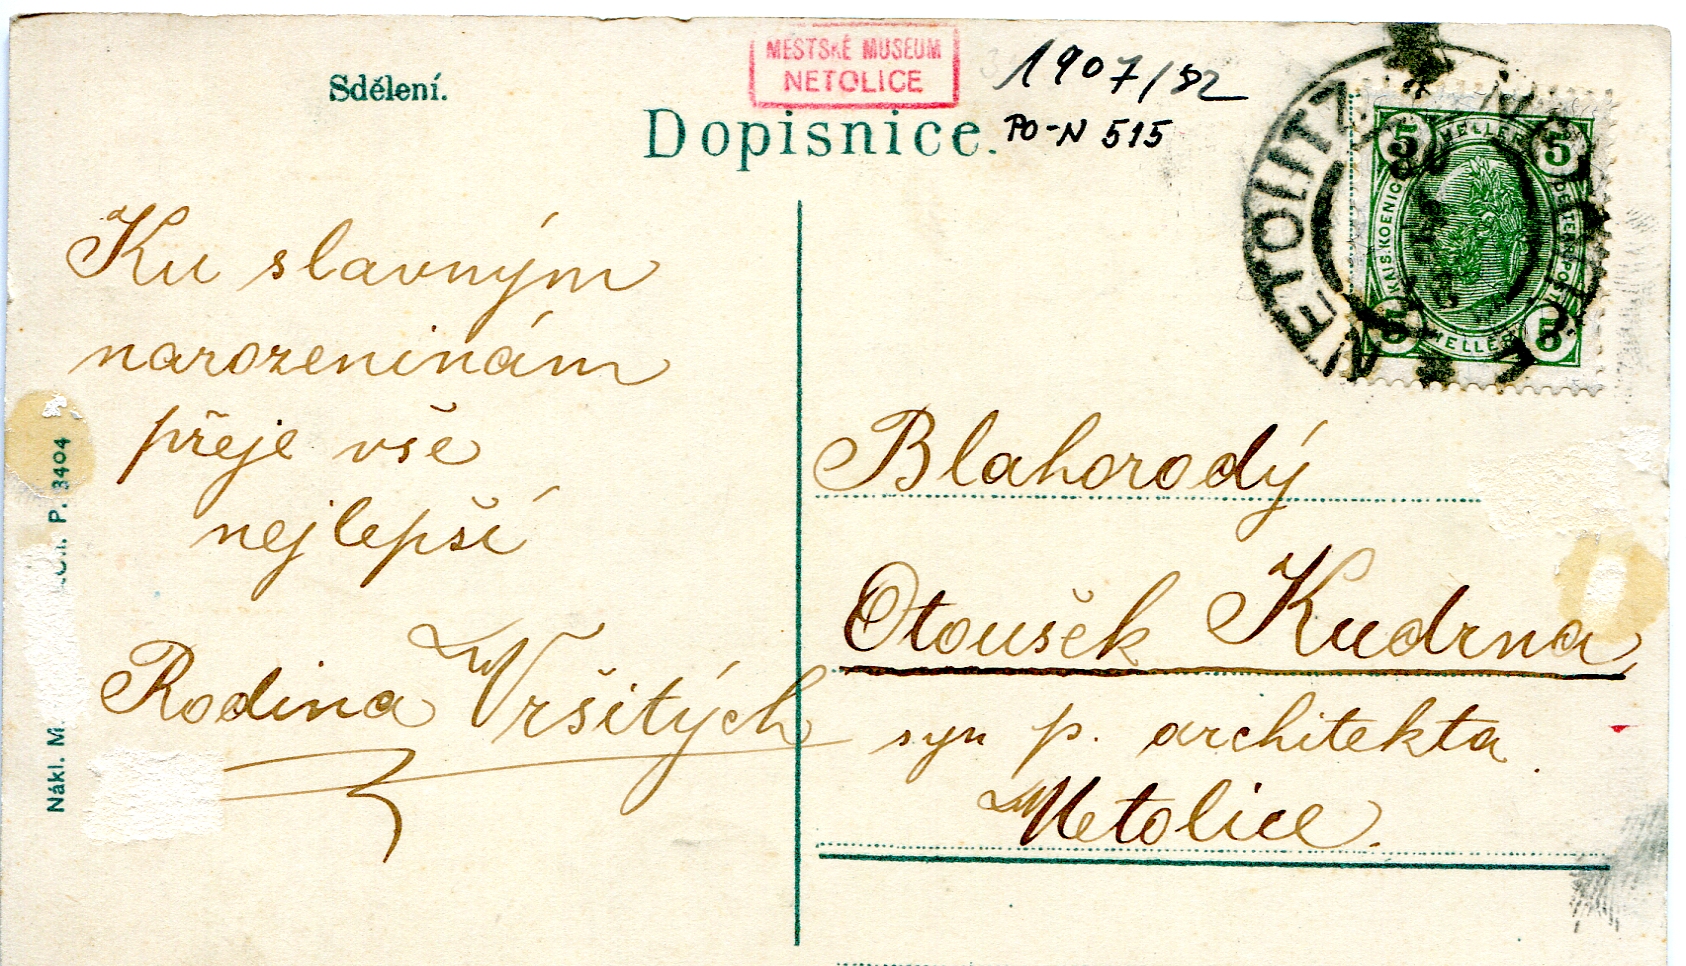 Sdělení.
MĚSTSKÉ MUSEUM
NETOLICE
1907/82
Dopisnice.
PO-N 515
NETOLITZ
5 HELLER 5
KAIS. KOENIGL.
OESTERR. POST
5 HELLER 5
Ku slavným
narozeninám
přeje vše
nejlepší
Rodina Vršitých
Blahorodý
Otoušek Kudrna,
syn p. architekta
Netolice.
Nákl. M
P. 3404